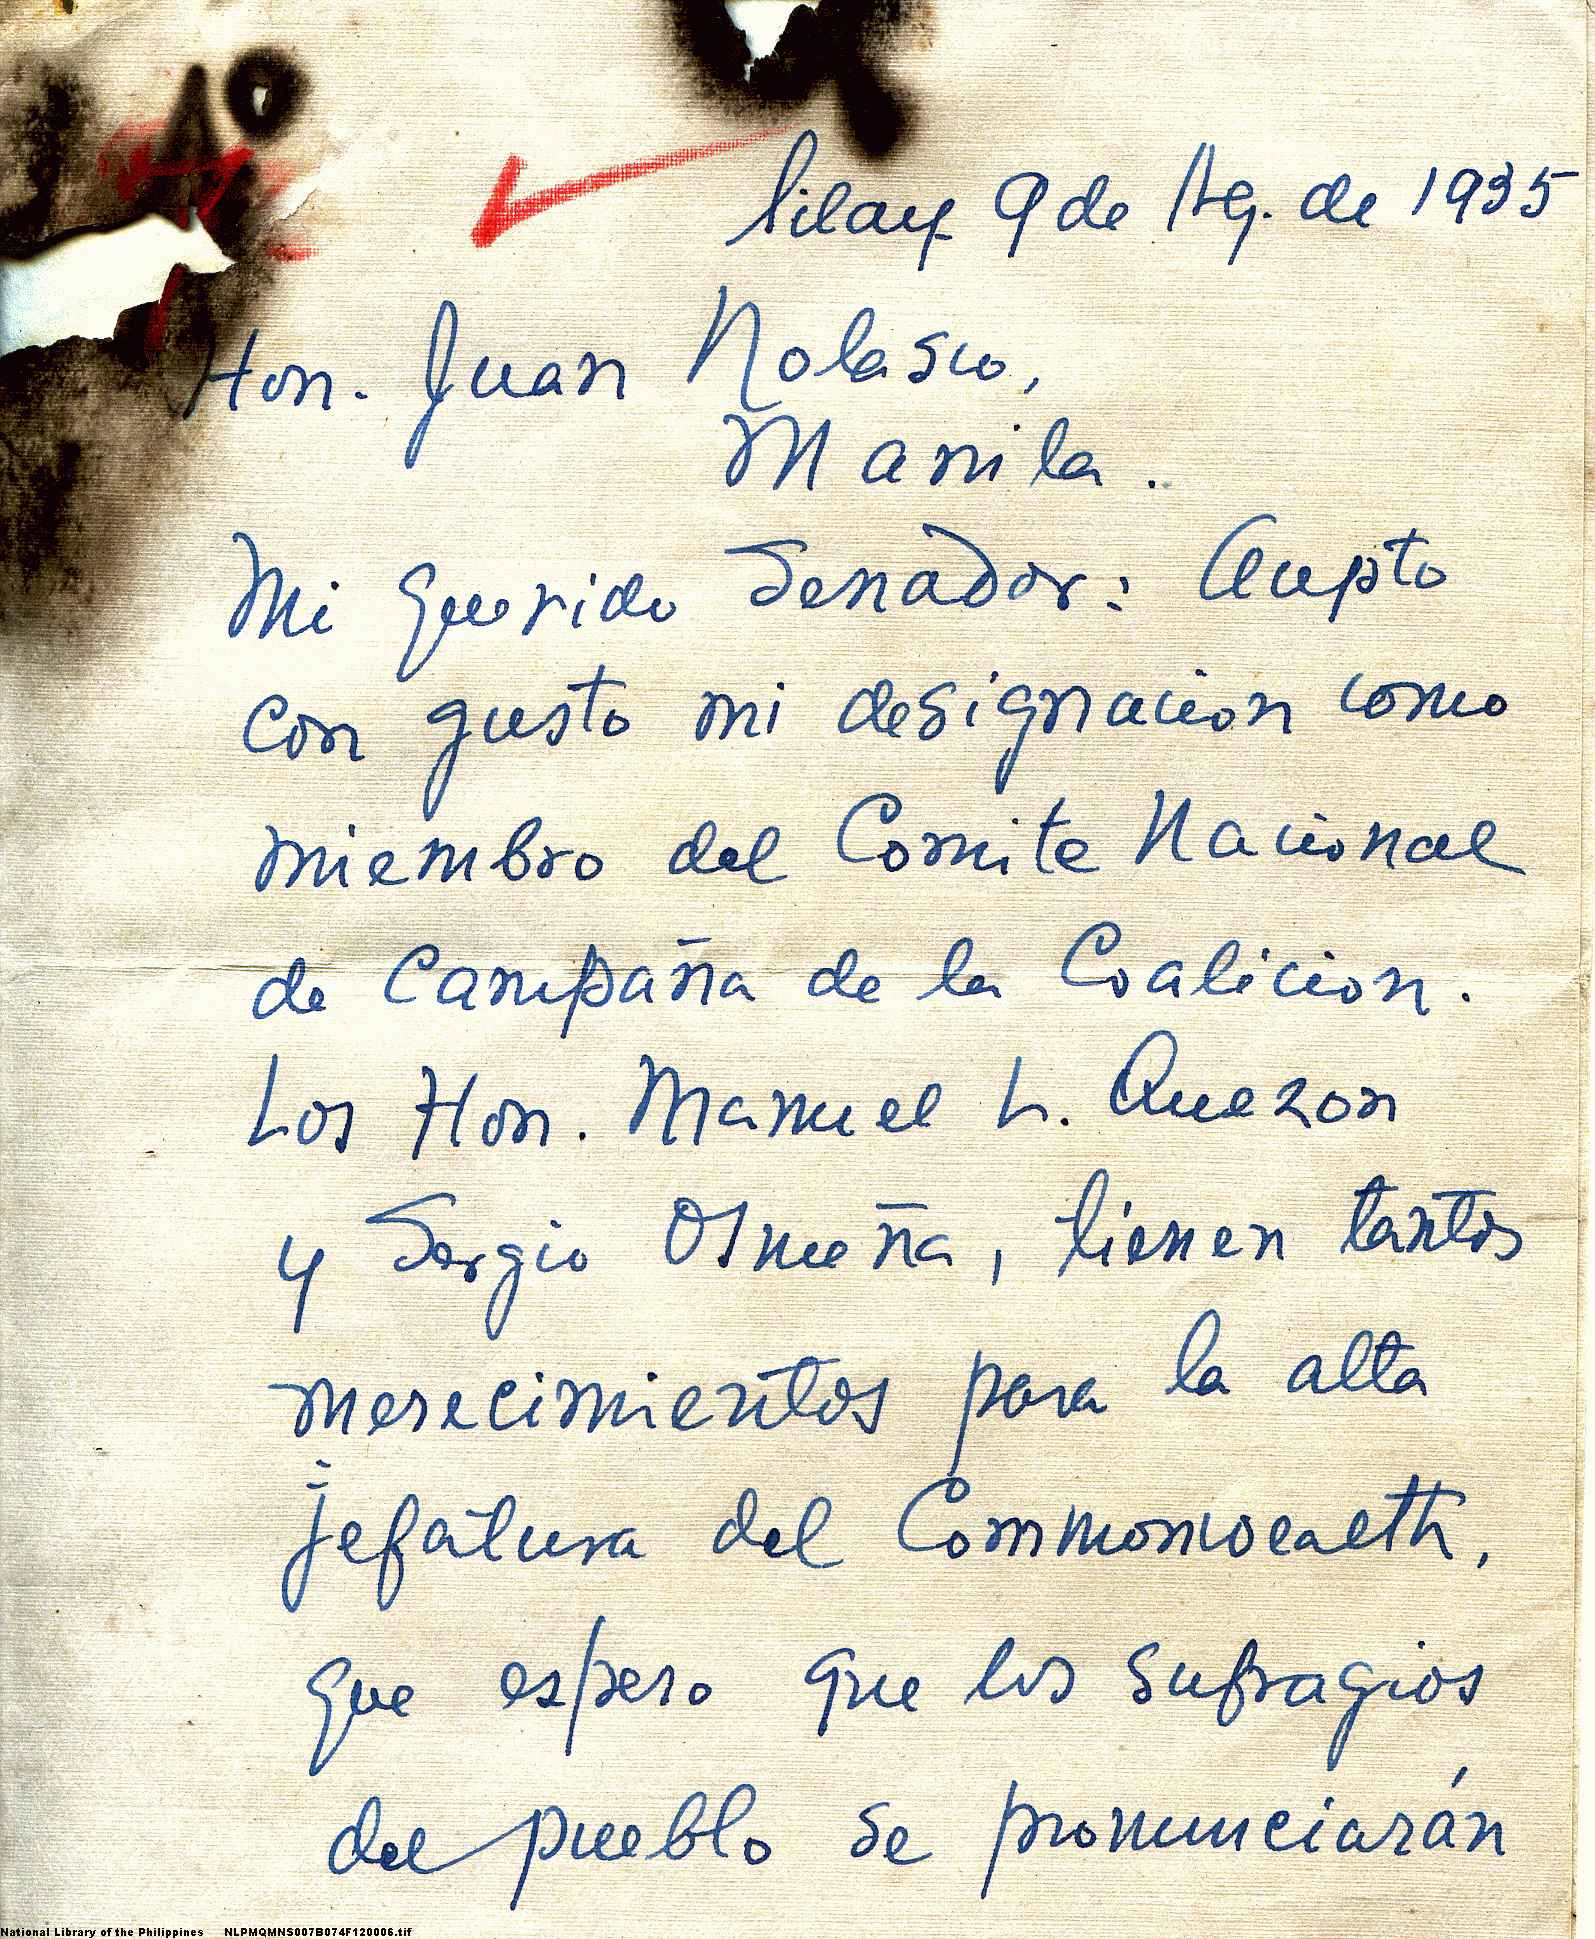 Silay 9 de Ag. de 1935
Hon. Juan Nolasco,
Manila.
Mi querido Senador: Acepto
con gusto mi designacion como
miembro del Comite Nacional
de Campaña de la Coalicion.
Los Hon. Manuel L. Quezon
y Sergio Osmeña, tienen tantos
merecimientos para la alta
jefatura del Commonwealth,
que espero que los sufragios
del pueblo se pronunciarán
National Library of the Philippines NLPMQMNS007B074F120006.tif